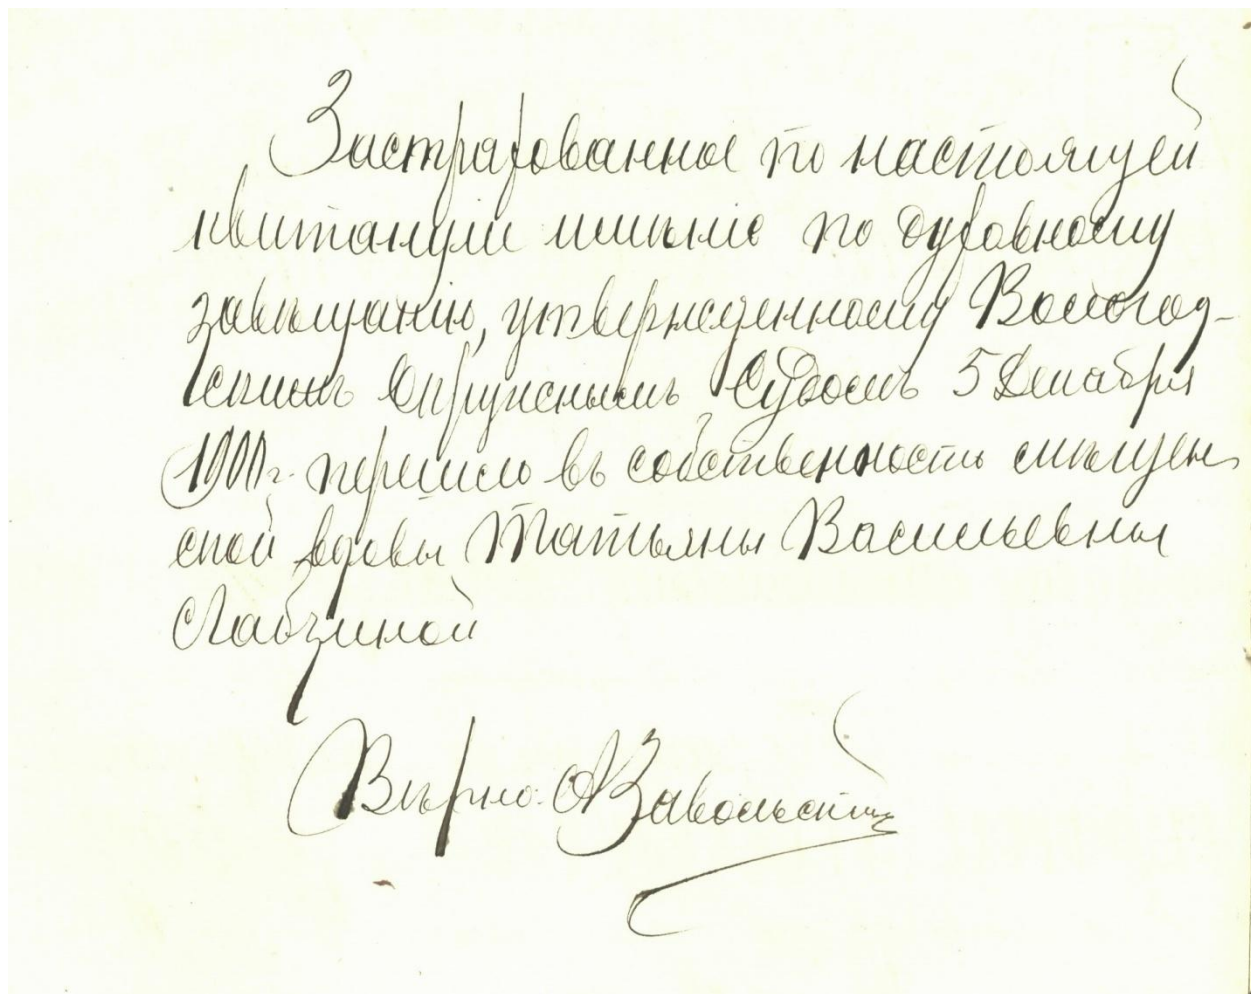 Застрахованное по настоящей
квитанціи имѣніе по духовному
завѣщанію, утвержденному Вологод-
скимъ Окружнымъ Судомъ 5 Декабря
1900 г. перешло въ собственность мѣщан-
ской вдовы Татьяны Васильевны
Лабзиной
Вѣрно: А Завольскій